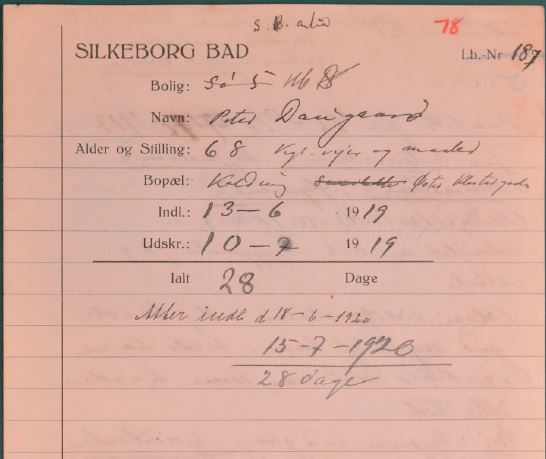 78
SILKEBORG BAD
Lb.-Nr 187
Bolig: Sø 5
Navn: Peter Damgaard
Alder og Stilling: 68 Kgl. vejer og maaler
Bopæl: Kolding Øster
Indl.: 13-6 1919
Udskr.: 10-7 1919
Ialt 28 Dage
Atter indl d 18-6-1920
15-7-1920
28 dage